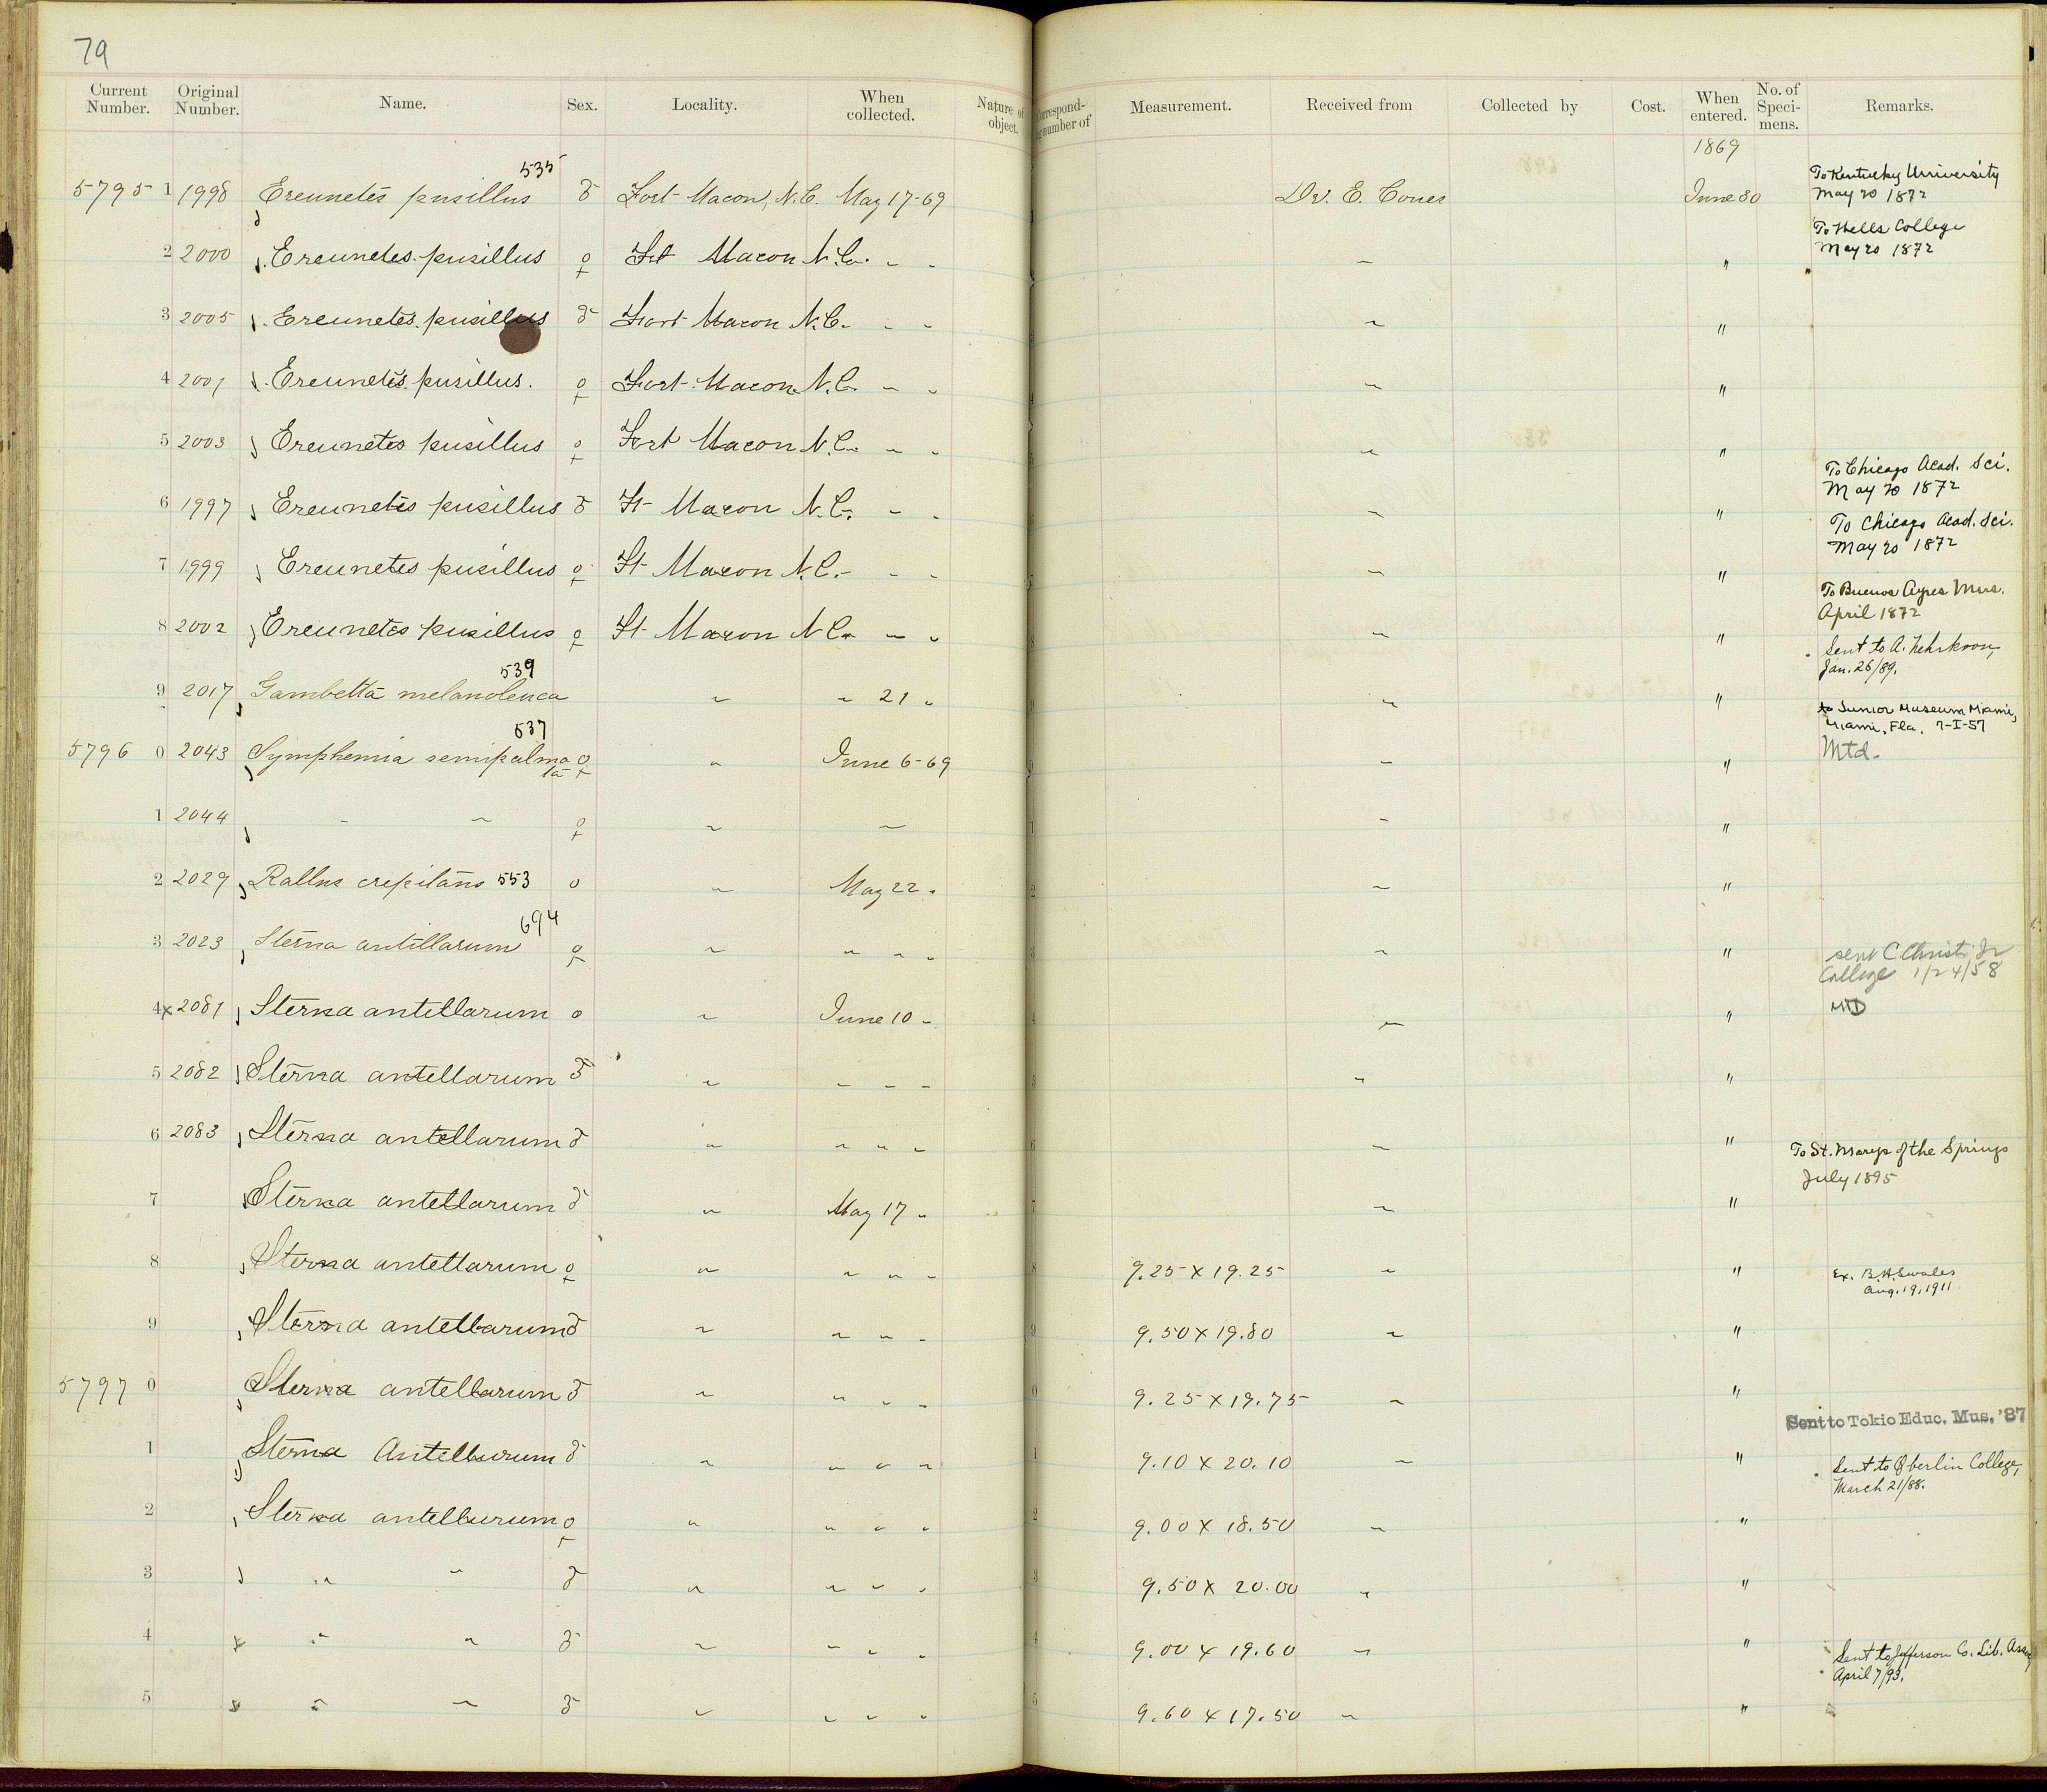 79
Current Number. Original Number. Name. Sex. Locality. When collected. Nature of object. Correspond- number of Measurement. Received from Collected by Cost. When entered. No. of Speci- mens. Remarks.
1869
535
5795 1 1998 Ereunetes pusillus ♂ Fort Macon, N.C. May 17-69 Dr. E. Coues June 30 To Kentucky University May 20 1872
2 2000 Ereunetes pusillus ♀ Ft Macon N.C. " " " " To Wells College May 20 1872
3 2005 Ereunetes pusillus ♂ Fort Macon N.C. " " " "
4 2001 Ereunetes pusillus. ♀ Fort Macon N.C. " " " "
5 2003 Ereunetes pusillus ♀ Fort Macon N.C. " " " "
6 1997 Ereunetes pusillus ♂ Ft Macon N.C. " " " " To Chicago Acad. Sci. May 20 1872
7 1999 Ereunetes pusillus ♀ Ft Macon N.C. " " " " To Chicago Acad. Sci. May 20 1872
8 2002 Ereunetes pusillus ♀ Ft Macon N.C. " " " " To Buenos Ayres Mus. April 1872
Sent to A. Nehrkorn, Jan. 26/89.
539
9 2017 Gambetta melanoleuca " " 21 " " "
to Junior Museum Miami, Miami, Fla. 7-I-57
537
5796 0 2043 Symphemia semipalmata ♀ " June 6-69 " " Mtd.
1 2044 " " ♀ " " " "
2 2029 Rallus crepitans 553 o " May 22 " " "
694
3 2023 Sterna antillarum ♀ " " " " " " sent C Christi Jr College 1/24/58
4x 2081 Sterna antellarum o " June 10 " " " MTD
5 2082 Sterna antellarum ♂ " " " " " "
6 2083 Sterna antellarum ♂ " " " " " " To St. Marys of the Springs July 1895
7 Sterna antellarum ♂ " May 17 " " "
8 Sterna antellarum ♀ " " " " 9.25 x 19.25 " " Ex. B.H. Swales Aug. 19, 1911
9 Sterna antellarum ♂ " " " " 9.50 x 19.80 " "
5797 0 Sterna antellarum ♂ " " " " 9.25 x 19.75 " "
Sent to Tokio Educ. Mus. '87
1 Sterna Antellarum ♂ " " " " 9.10 x 20.10 " " Sent to Oberlin College, March 21/88.
2 Sterna antellarum ♀ " " " " 9.00 x 18.50 " "
3 " " ♂ " " " " 9.50 x 20.00 " "
4 x " " ♂ " " " " 9.00 x 19.60 " " Sent to Jefferson Co. Lib. Assn April 7/93.
5 " " ♂ " " " " 9.60 x 17.50 " "